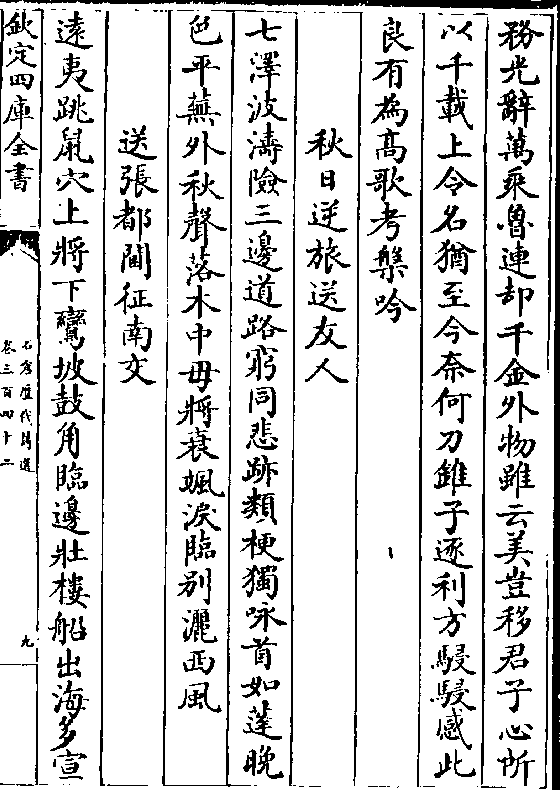 務光辭萬乘魯連却千金外物雖云美豈移君子心所
以千載上令名猶至今奈何刀錐子逐利方駸駸感此
良有為髙歌考槃吟
秋日逆旅送友人
七澤波濤險三邊道路窮同悲跡類梗獨咏首如蓬晚
色平蕪外秋聲落木中毋將衰颯淚臨别灑西風
送張都閫征南交
逺夷跳䑕穴上將下鸞坡鼓角臨邊壯樓船出海多宣
欽定四庫全書
石倉歷代詩選
卷三百四十二
九